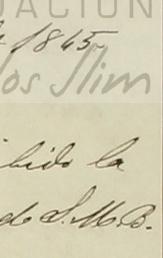 DACIÓN
1865
los Slim
bido la
de S. M. B.